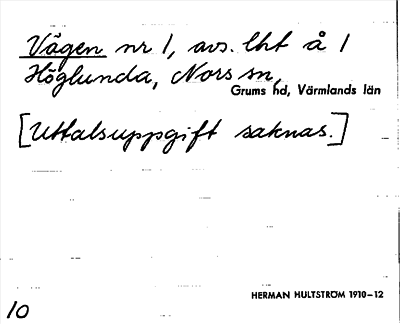 Vägen nr 1, avs. lht å 1
Höglunda, Nors sn,
Grums hd, Värmlands län
[Uttalsuppgift saknas.]
HERMAN HULTSTRÖM 1910–12
10